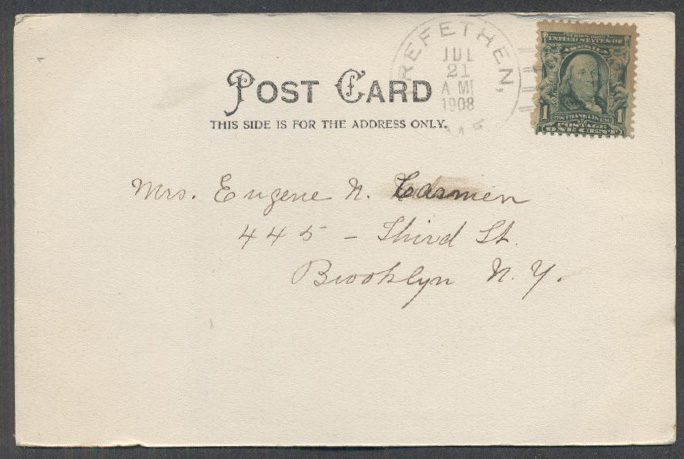 REFETHEN,
JUL
21
A M
1908
POST CARD
THIS SIDE IS FOR THE ADDRESS ONLY.
UNITED STATES OF
AMERICA
1 1
POSTAGE
ONE CENT
Mrs. Eugene N.
445 - Third St.
Brooklyn N.Y.